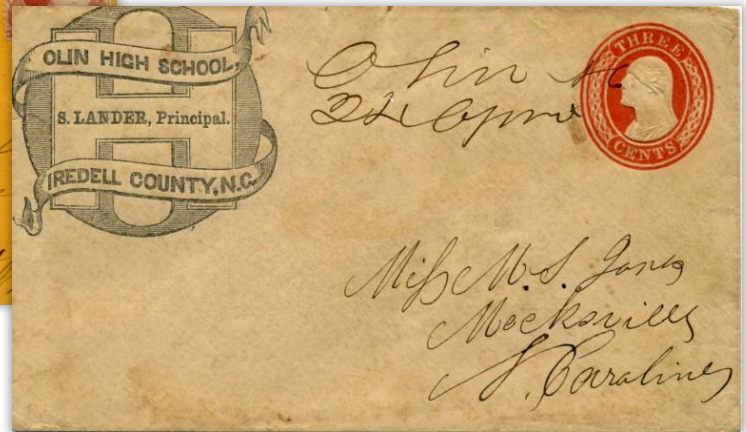 OLIN HIGH SCHOOL,
S. LANDER, Principal.
IREDELL COUNTY, N.C.
Olin NC
24 April
THREE
CENTS
Miss M. S. Jones
Mocksville
N. Carolina